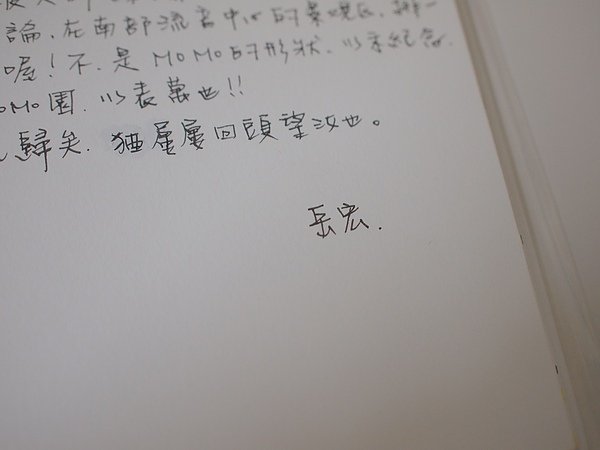 論.在南部流言中心的
喔！不.是MOMO的形狀.以末紀念.
OMO園.以表萬也!!
歸矣.猶屢屢回頭望汝也。
岳宏.